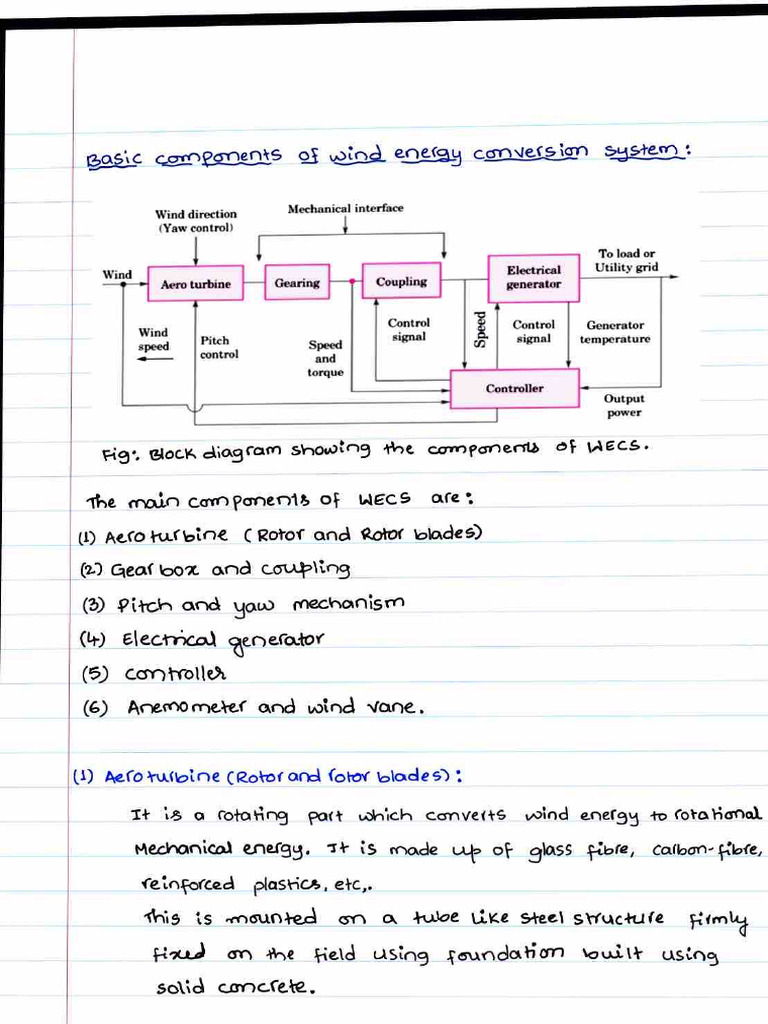 Basic components of wind energy conversion system:
Wind direction
(Yaw control)
Mechanical interface
Wind
Aero turbine
Gearing
Coupling
Electrical
generator
To load or
Utility grid
Wind
speed
Pitch
control
Speed
and
torque
Control
signal
Speed
Control
signal
Generator
temperature
Controller
Output
power
Fig: Block diagram showing the components of WECS.
The main components of WECS are:
(1) Aeroturbine (Rotor and Rotor blades)
(2) Gear box and coupling
(3) Pitch and yaw mechanism
(4) Electrical generator
(5) controller
(6) Anemometer and wind vane.
(1) Aeroturbine (Rotor and rotor blades):
It is a rotating part which converts wind energy to rotational
Mechanical energy. It is made up of glass fibre, carbon-fibre,
reinforced plastics, etc,.
This is mounted on a tube like steel structure firmly
fixed on the field using foundation built using
solid concrete.